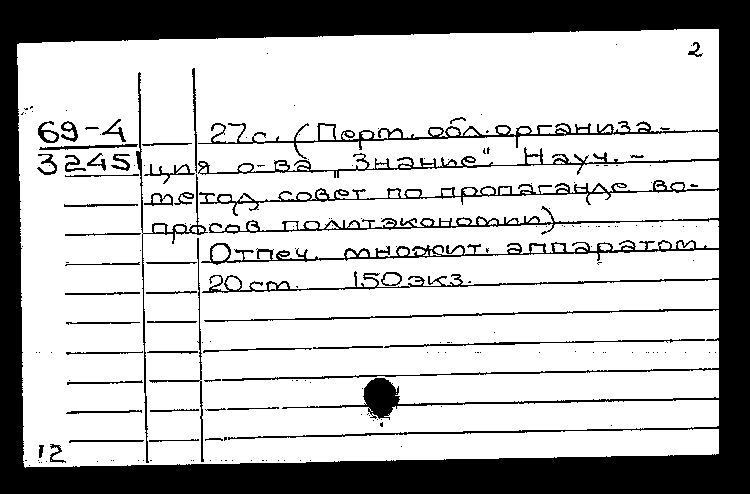 2
69-4 27 с. (Перм. обл. организа-
3245 ция о-ва „Знание". Науч.-
метод. совет по пропаганде во-
просов политэкономии)
Отпеч. множит. аппаратом.
20 см. 150 экз.
12